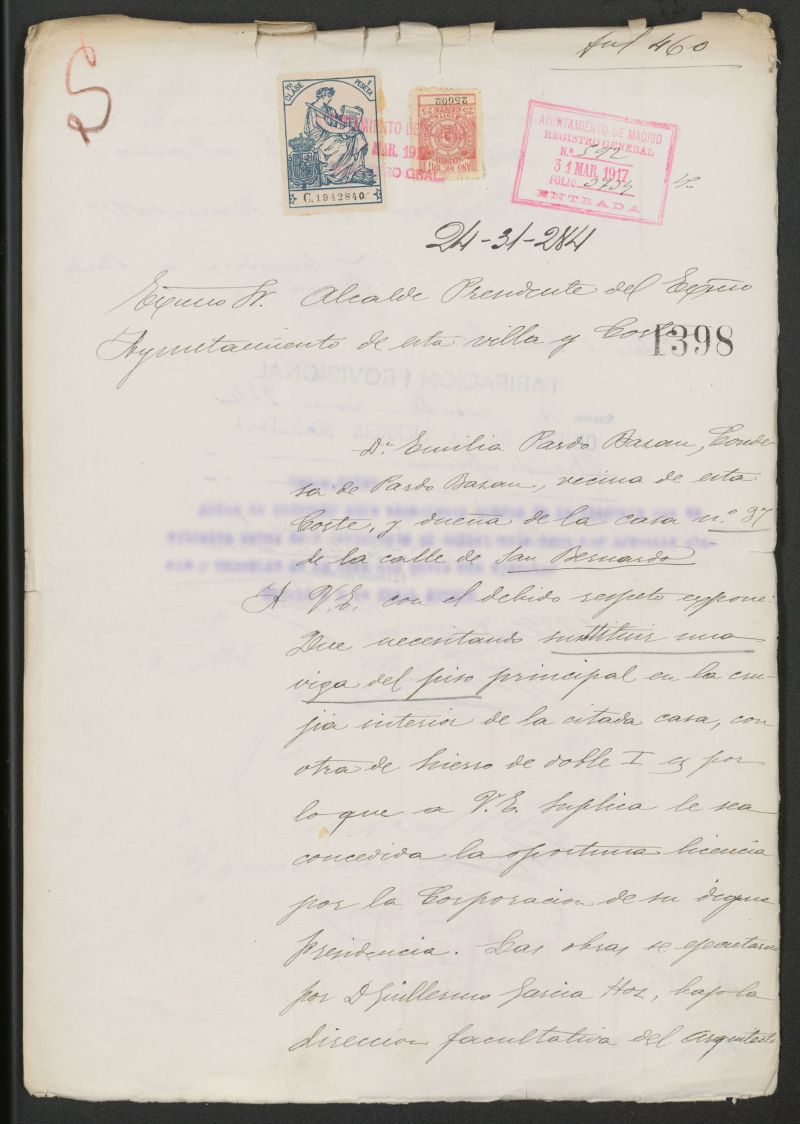 S
460
11ª CLASE 1 PESETA
C.1942840.
25602
25 CENTS 25
AYUNTAMIENTO DE MADRID
REGISTRO GENERAL
N.º 592
31 MAR. 1917
FOLIO
ENTRADA
MAR. 191
24-31-284
Excmo Sr. Alcalde Presidente del Excmo
Ayuntamiento de esta villa y Corte
1398
Dª Emilia Pardo Bazan, Conde-
sa de Pardo Bazan, vecina de esta
Corte, y dueña de la casa n.º 37
de la calle de San Bernardo
A V.E. con el debido respeto expone:
Que necesitando sustituir una
viga del piso principal en la cru-
jia interior de la citada casa, con
otra de hierro de doble I es por
lo que a V.E. Suplica le sea
concedida la oportuna licencia
por la Corporacion de su digna
presidencia. Las obras se ejecutaran
por D Guillermo Garcia Hoz, bajo la
direccion facultativa del Arquitecto